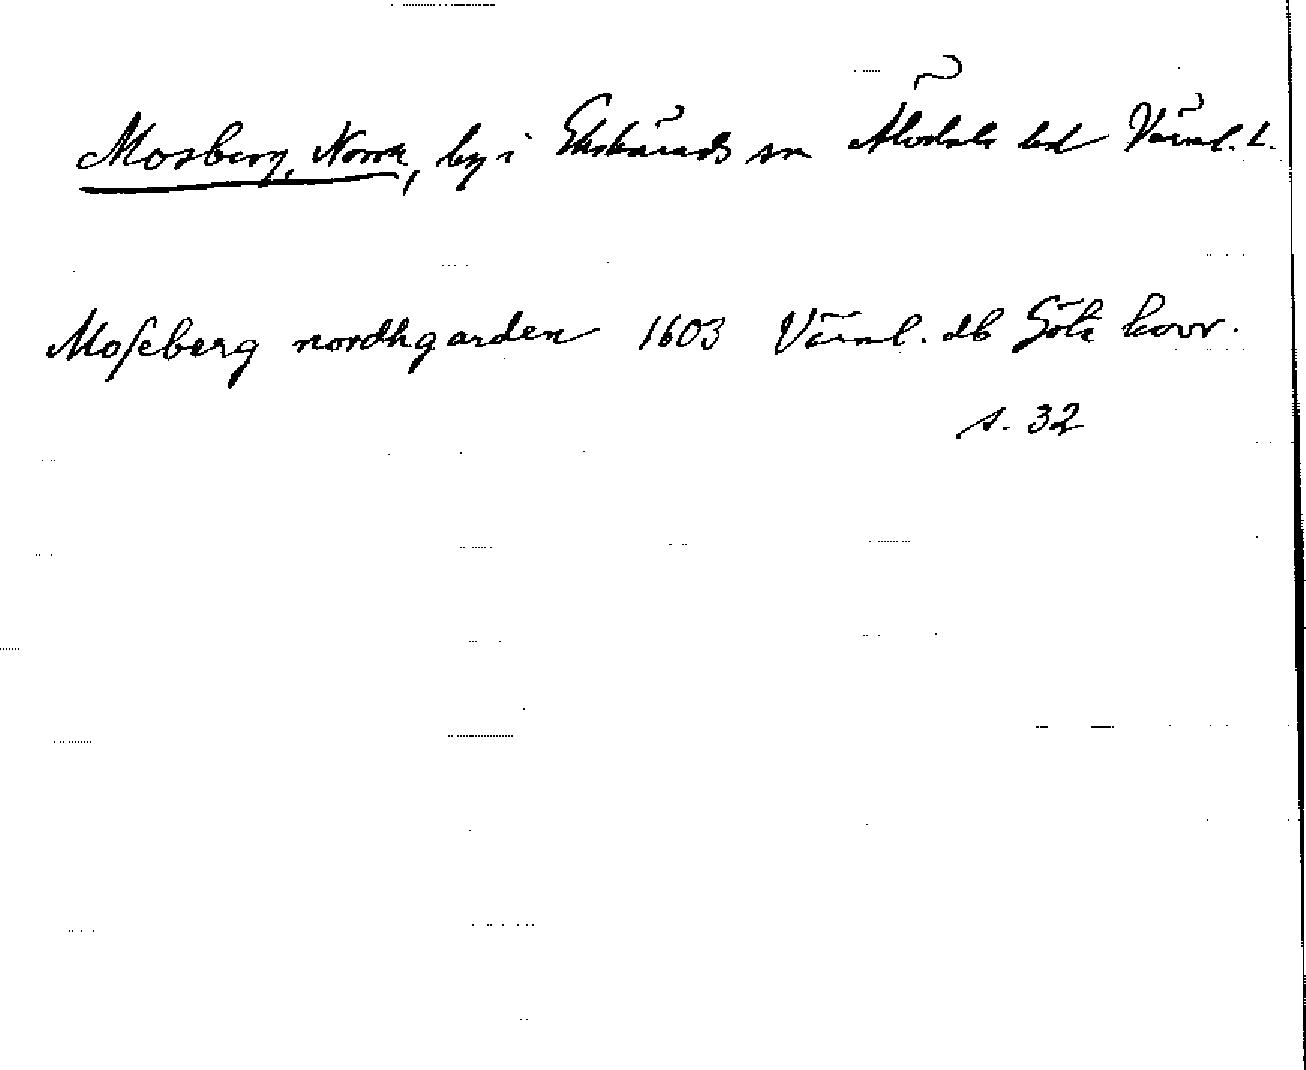 Mosberg, Norra, by i Ekshärads sn Älvdals hd Värml. l.
Moseberg nordhgarden 1603 Värml. db Göta hovr.
s. 32